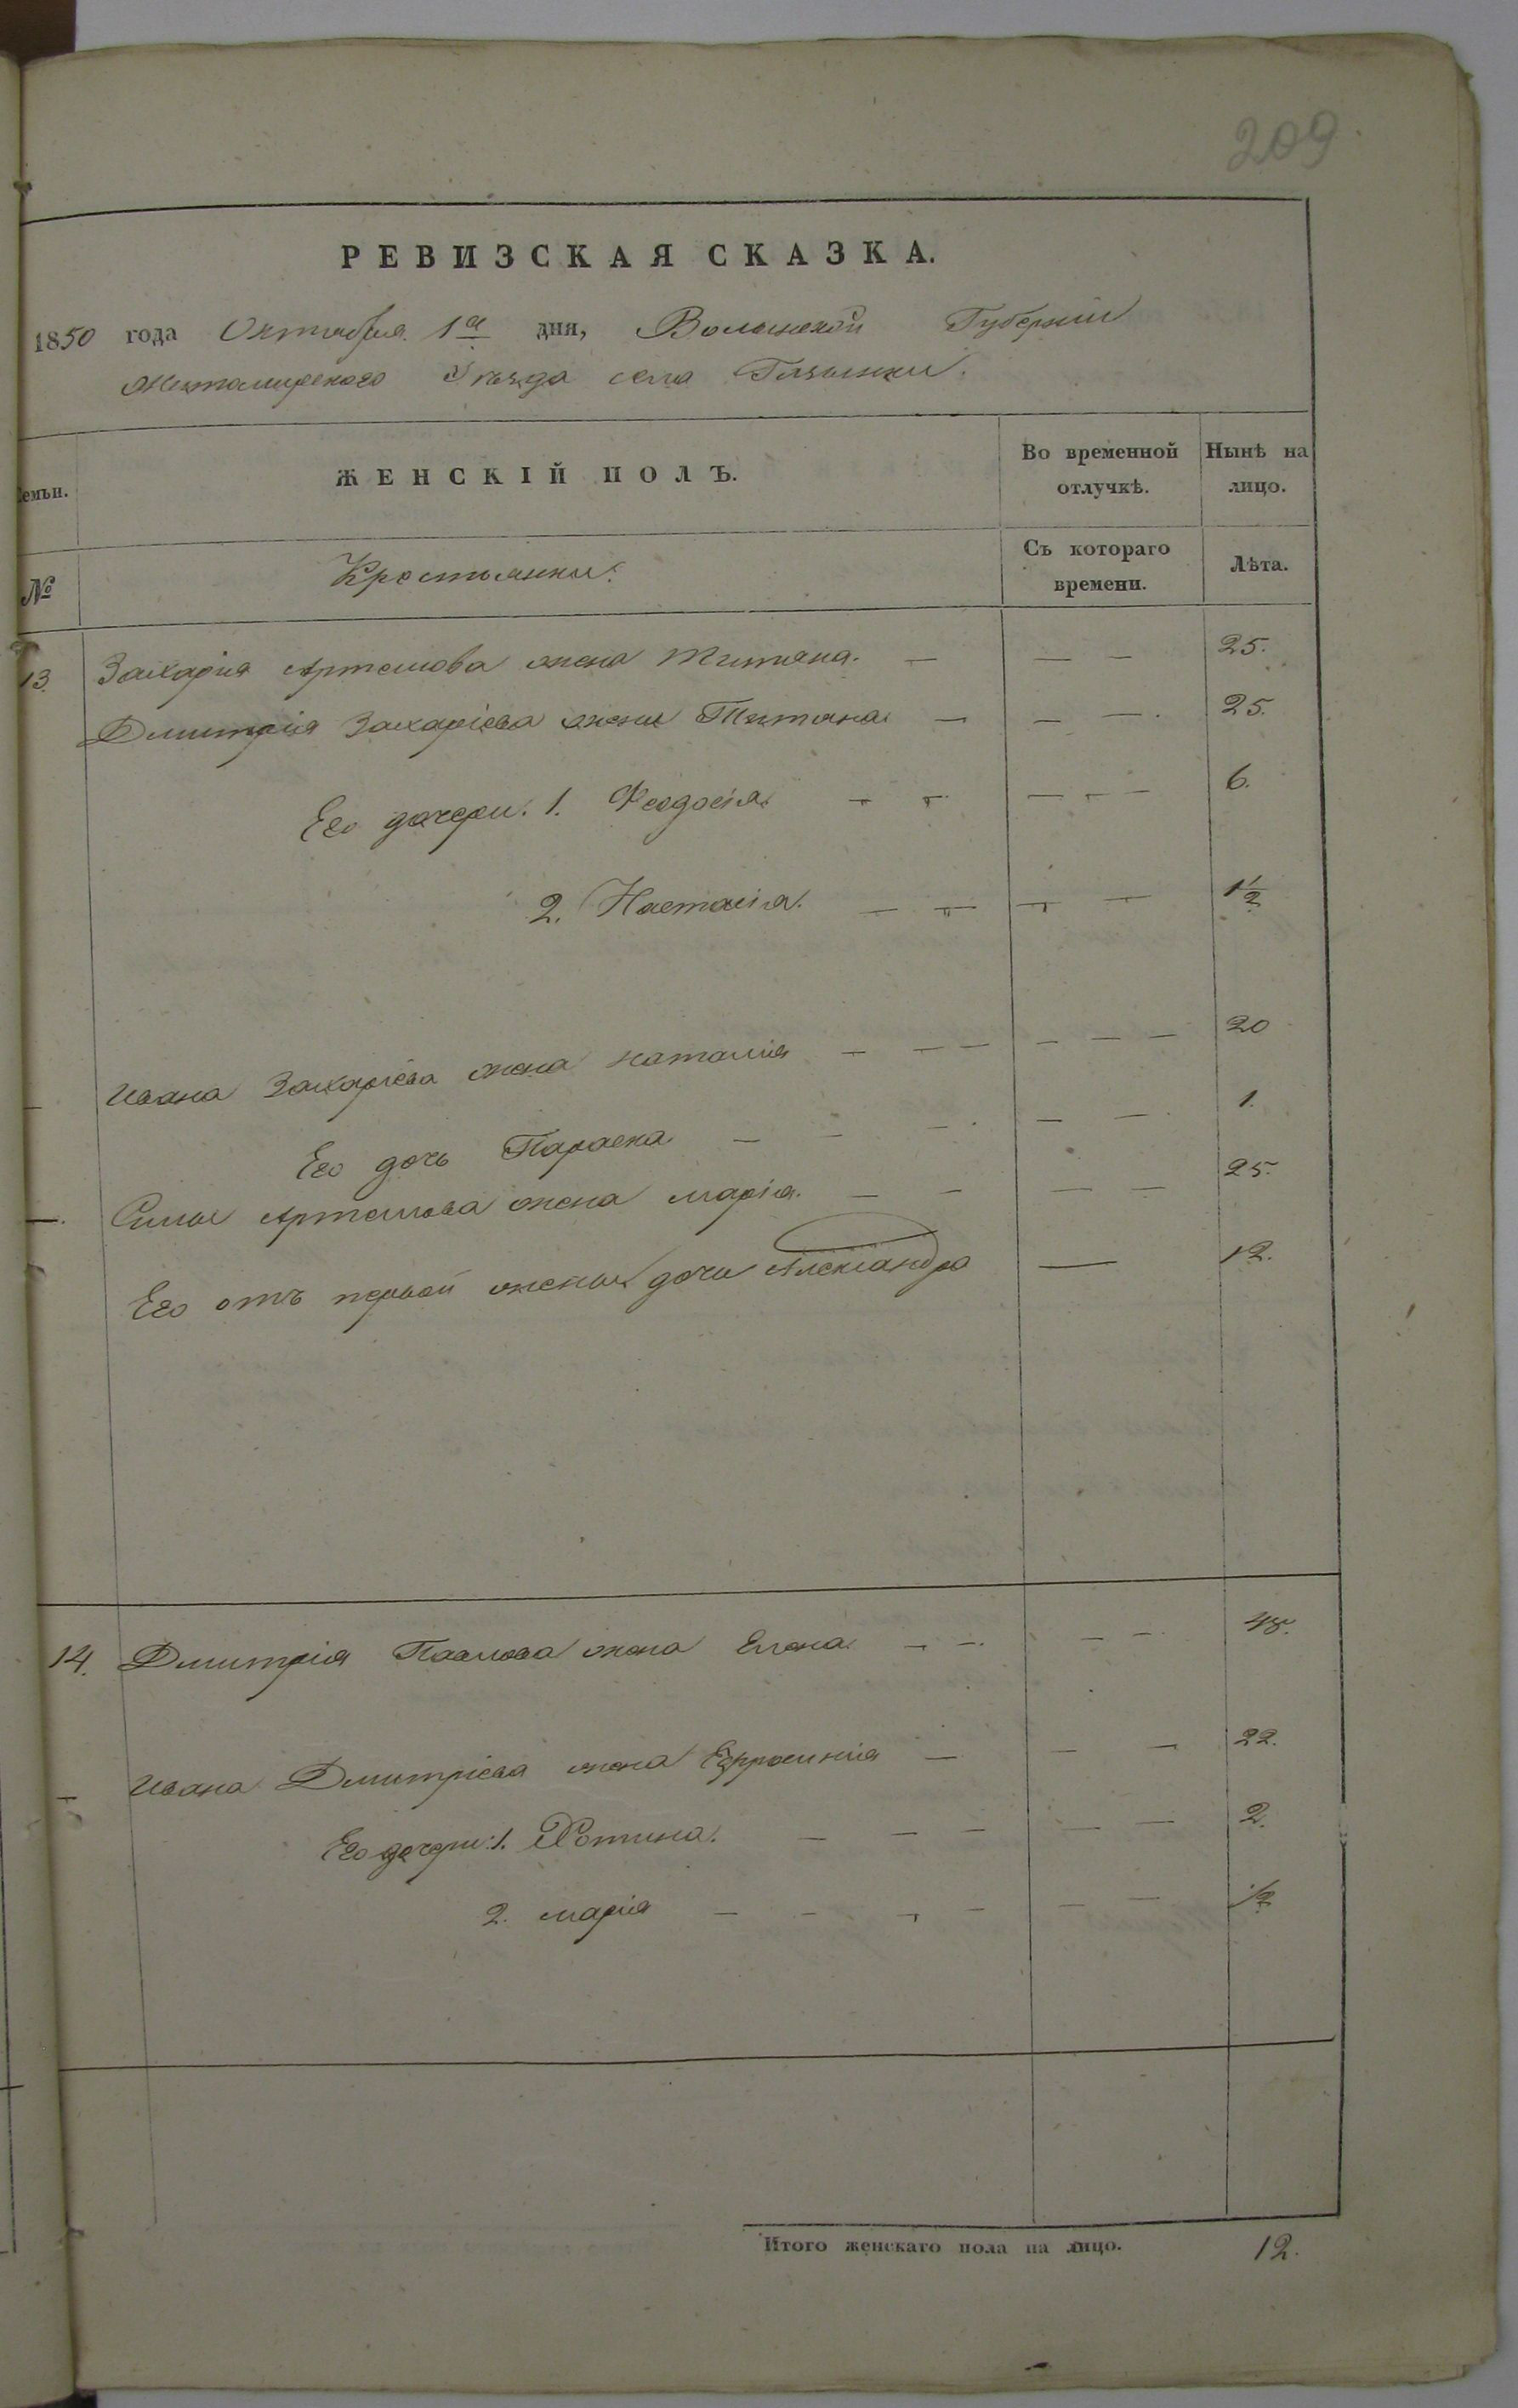 209
РЕВИЗСКАЯ СКАЗКА.
1850 года Октября 1го дня, Волынской Губернии
Житомирского Уѣзда села
емьи. ЖЕНСКІЙ ПОЛЪ. Во временной отлучкѣ. Нынѣ на лицо.
№ Крестьянки. Съ котораго времени. Лѣта.
13. Захарія Артемова жена Титяна. — — — 25.
Дмитрія Захаріева жены Титяна — — — 25.
Его дочери. 1. Феодосія. — — — — — 6.
2. Настасія. — — — — 1 1/2
— Ивана Захаріева жена Наталія — — — — — — 20
Его дочь Параска — — — — — 1.
—. Симы Артемова жена марія. — — — — 25.
Его отъ первой жены дочь Александра — 12.
14. Дмитрія Павлова жена Елена — — — — 48.
— Ивана Дмитріева жена Ефросинія — — — 22.
Его дочери: 1. Фотина. — — — — — 2.
2. марія — — — — — — 1/2
Итого женскаго пола на лицо. 12.